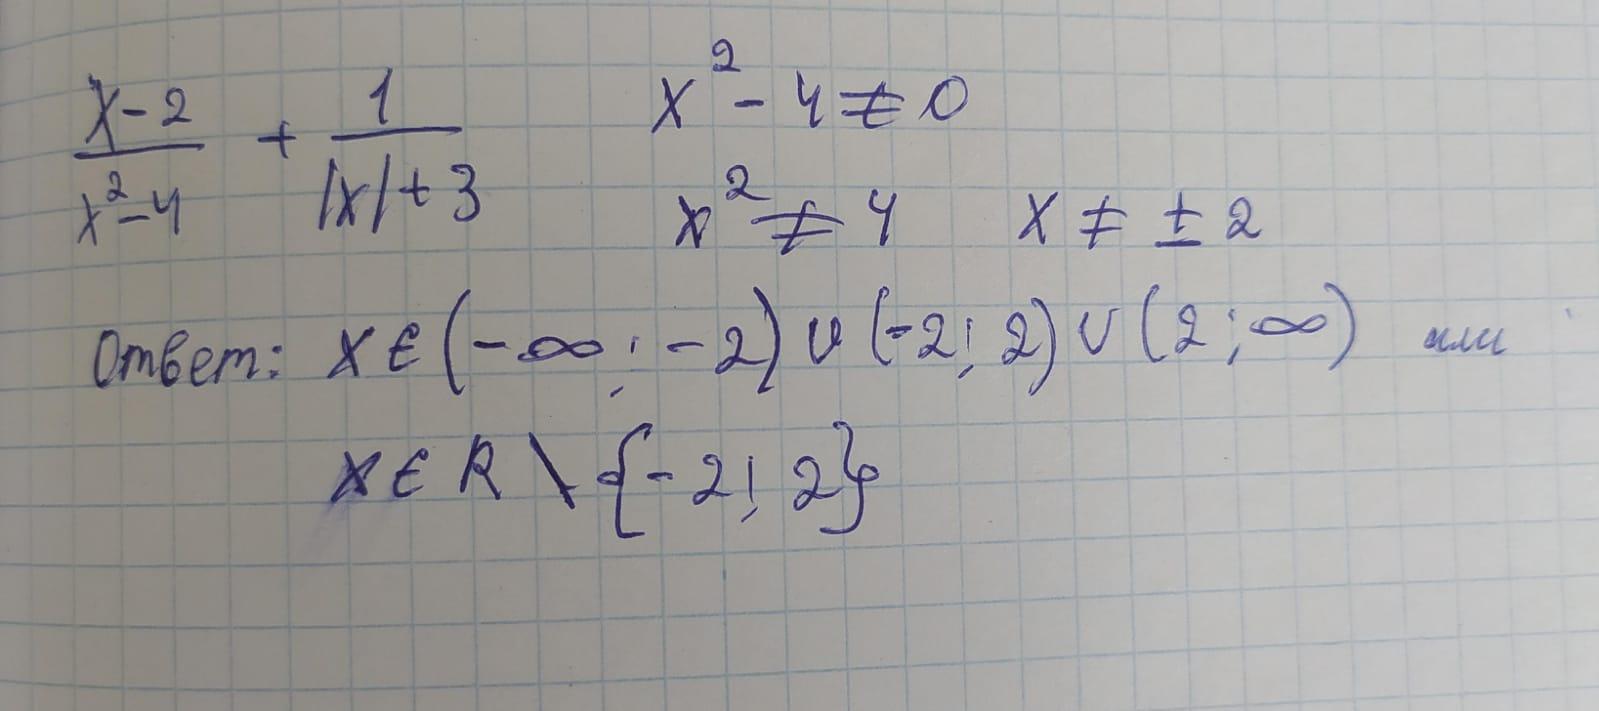 (x-2)/(x²-4) + 1/(|x|+3)    x² - 4 ≠ 0
x² ≠ 4    x ≠ ± 2
Ответ: x ∈ (-∞; -2) ∪ (-2; 2) ∪ (2; ∞) или
x ∈ R \ {-2; 2}